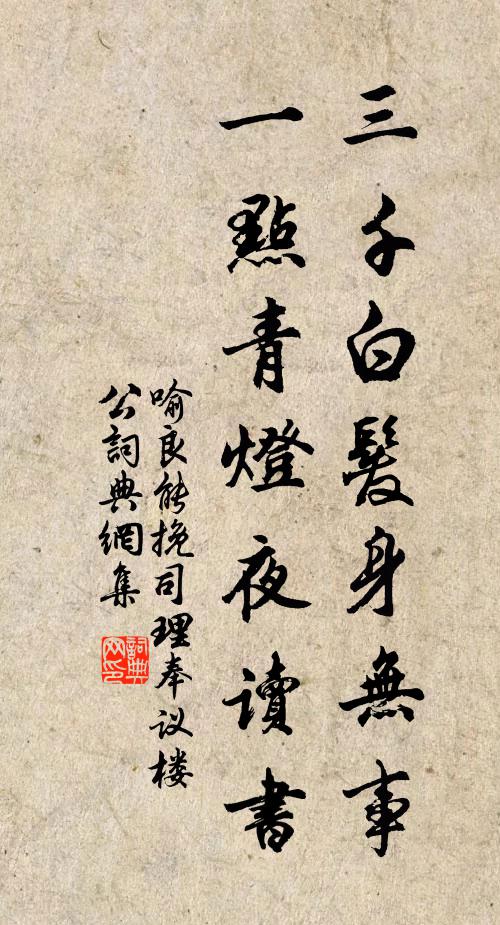 三千白髮身無事
一點青燈夜讀書
喻良能挽司理奉议楼
公詞典網集
詞典网印